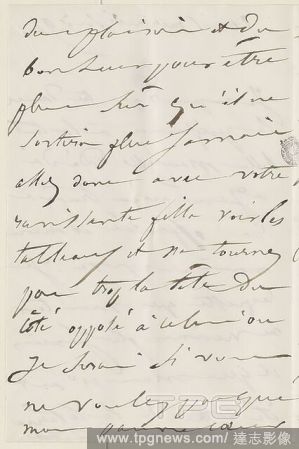 du plaisir et du
bonheur pour être
plus sûr qu'il ne
sortira plus jamais
allez donc avec votre
ravissante fille voir les
tableaux et ne tournez
pas trop la tête du
côté opposé à celui ou
je serai si vous
ne voulez pas que
mon pauvre cœur
TPG
www.tpgnews.com/ 達志影像